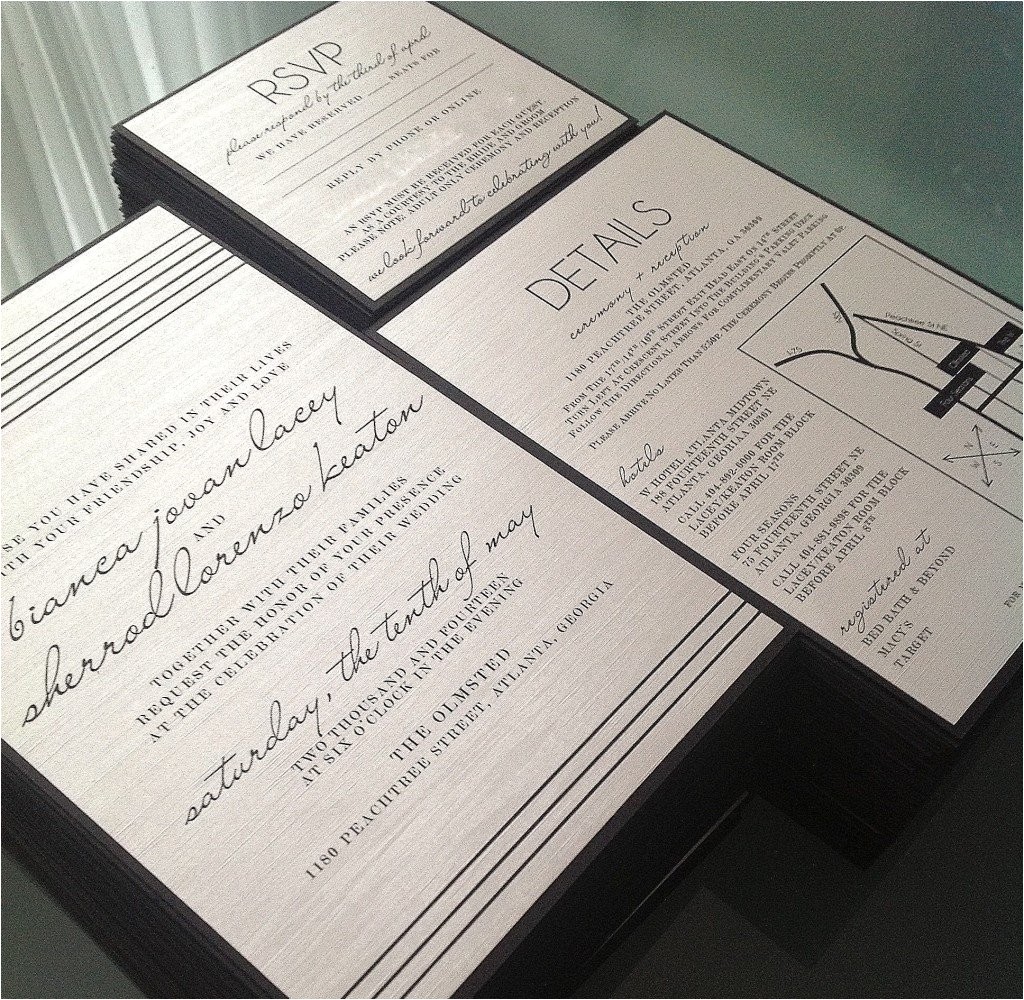 RSVP
please respond by the third of april
WE HAVE RESERVED ____ SEATS FOR
REPLY BY PHONE OR ONLINE
AN RSVP MUST BE RECEIVED FOR EACH GUEST
AS A COURTESY TO THE BRIDE AND GROOM
PLEASE NOTE: ADULT ONLY CEREMONY AND RECEPTION
we look forward to celebrating with you!
SE YOU HAVE SHARED IN THEIR LIVES
TH YOUR FRIENDSHIP, JOY AND LOVE
bianca jovan lacey
AND
sherrod lorenzo keaton
TOGETHER WITH THEIR FAMILIES
REQUEST THE HONOR OF YOUR PRESENCE
AT THE CELEBRATION OF THEIR WEDDING
saturday, the tenth of may
TWO THOUSAND AND FOURTEEN
AT SIX O'CLOCK IN THE EVENING
THE OLMSTED
1180 PEACHTREE STREET, ATLANTA, GEORGIA
DETAILS
ceremony + reception
THE OLMSTED
1180 PEACHTREE STREET, ATLANTA, GA 30309
FROM THE 17TH/14TH/10TH STREET EXIT HEAD EAST ON 14TH STREET
TURN LEFT AT CRESCENT STREET INTO THE BUILDING'S PARKING DECK
FOLLOW THE DIRECTIONAL ARROWS FOR COMPLIMENTARY VALET PARKING
PLEASE ARRIVE NO LATER THAN 5:30P. THE CEREMONY BEGINS PROMPTLY AT 6P
I-75
Peachtree St NE
Spring St
Olmsted
Four Seasons
N
E
S
W
hotels
W HOTEL ATLANTA MIDTOWN
188 FOURTEENTH STREET NE
ATLANTA, GEORGIAA 30361
CALL 404-892-6000 FOR THE
LACEY/KEATON ROOM BLOCK
BEFORE APRIL 17TH
FOUR SEASONS
75 FOURTEENTH STREET NE
ATLANTA, GEORGIA 30309
CALL 404-881-9898 FOR THE
LACEY/KEATON ROOM BLOCK
BEFORE APRIL 5TH
registered at
BED BATH & BEYOND
MACY'S
TARGET
FOR